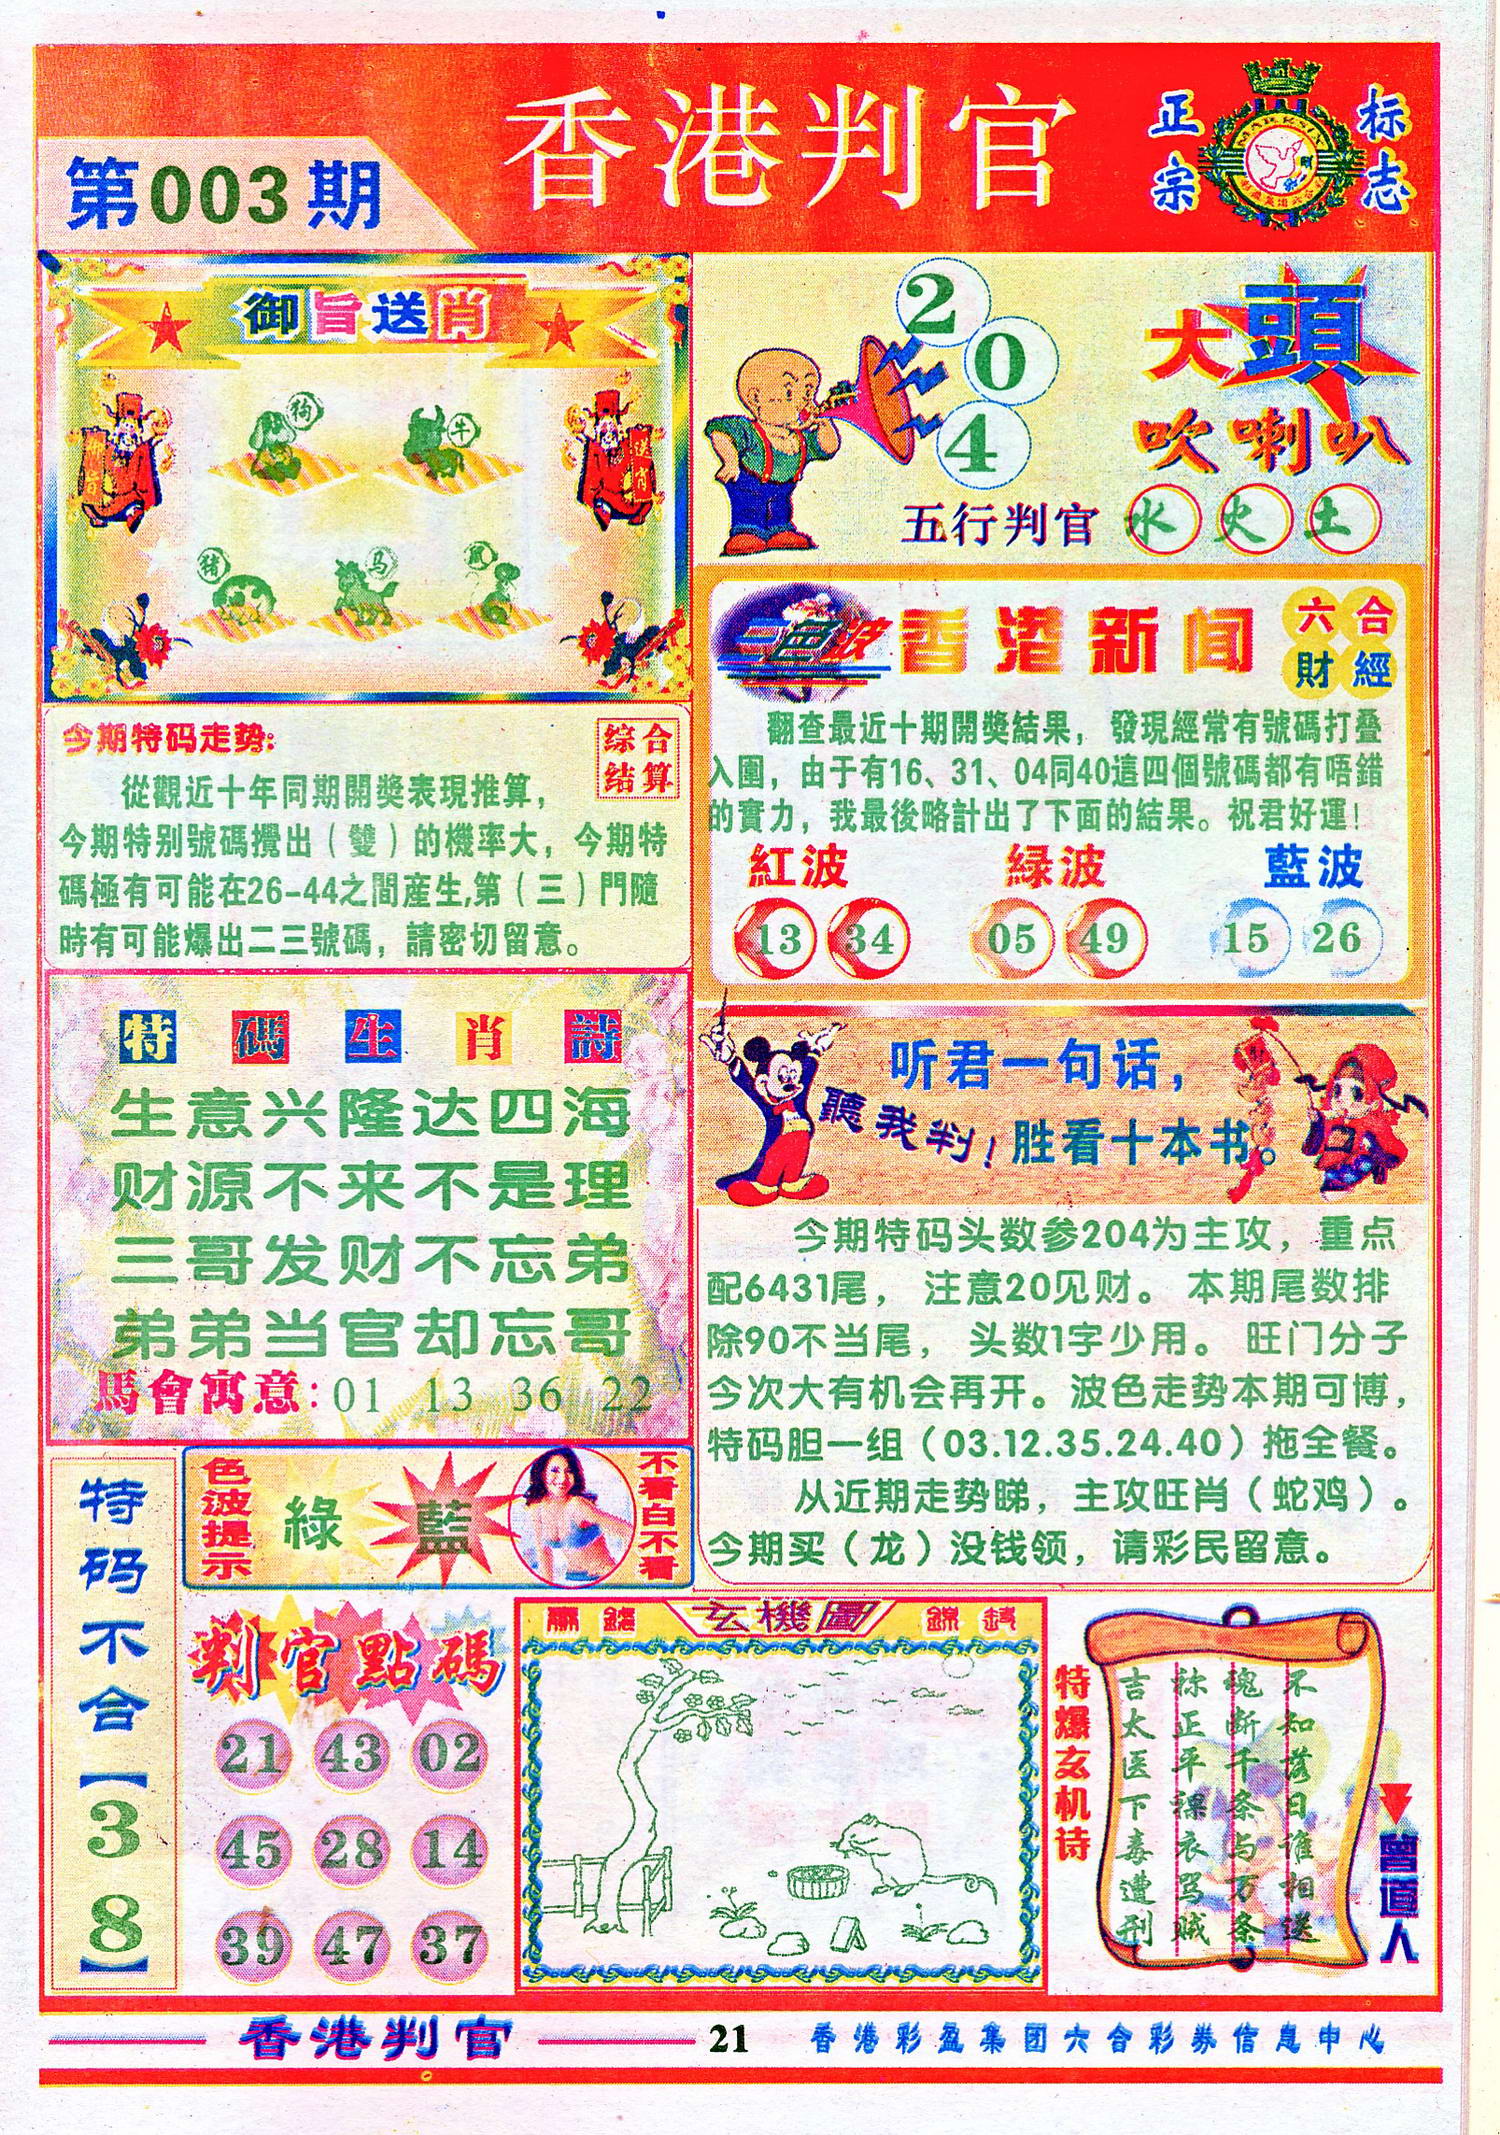 香港判官
正宗
标志
第003期
御旨送肖
狗
牛
猪
马
鼠
御旨
送肖
2
0
4
大頭
吹喇叭
五行判官 水 火 土
三色波
香港新闻
六合
財經
翻查最近十期開獎結果，發現經常有號碼打叠
入圍，由于有16、31、04同40這四個號碼都有唔錯
的實力，我最後略計出了下面的結果。祝君好運！
紅波 緑波 藍波
13 34 05 49 15 26
今期特码走势:
综合
结算
從觀近十年同期開獎表現推算，
今期特别號碼攪出（雙）的機率大，今期特
碼極有可能在26-44之間産生,第（三）門隨
時有可能爆出二三號碼，請密切留意。
特碼生肖詩
生意兴隆达四海
财源不来不是理
三哥发财不忘弟
弟弟当官却忘哥
馬會寓意:01 13 36 22
听君一句话，
聽我判！
胜看十本书。
今期特码头数参204为主攻，重点
配6431尾，注意20见财。本期尾数排
除90不当尾，头数1字少用。旺门分子
今次大有机会再开。波色走势本期可博，
特码胆一组（03.12.35.24.40）拖全餐。
从近期走势睇，主攻旺肖（蛇鸡）。
今期买（龙）没钱领，请彩民留意。
色波提示
綠
藍
不看白不看
特码不合【38】
判官點碼
21 43 02
45 28 14
39 47 37
玄機圖
特爆玄机诗
不知落日谁相送
魂断千条与万条
祢正平裸衣骂贼
吉太医下毒遭刑
曾道人
香港判官
21
香港彩盈集团六合彩券信息中心